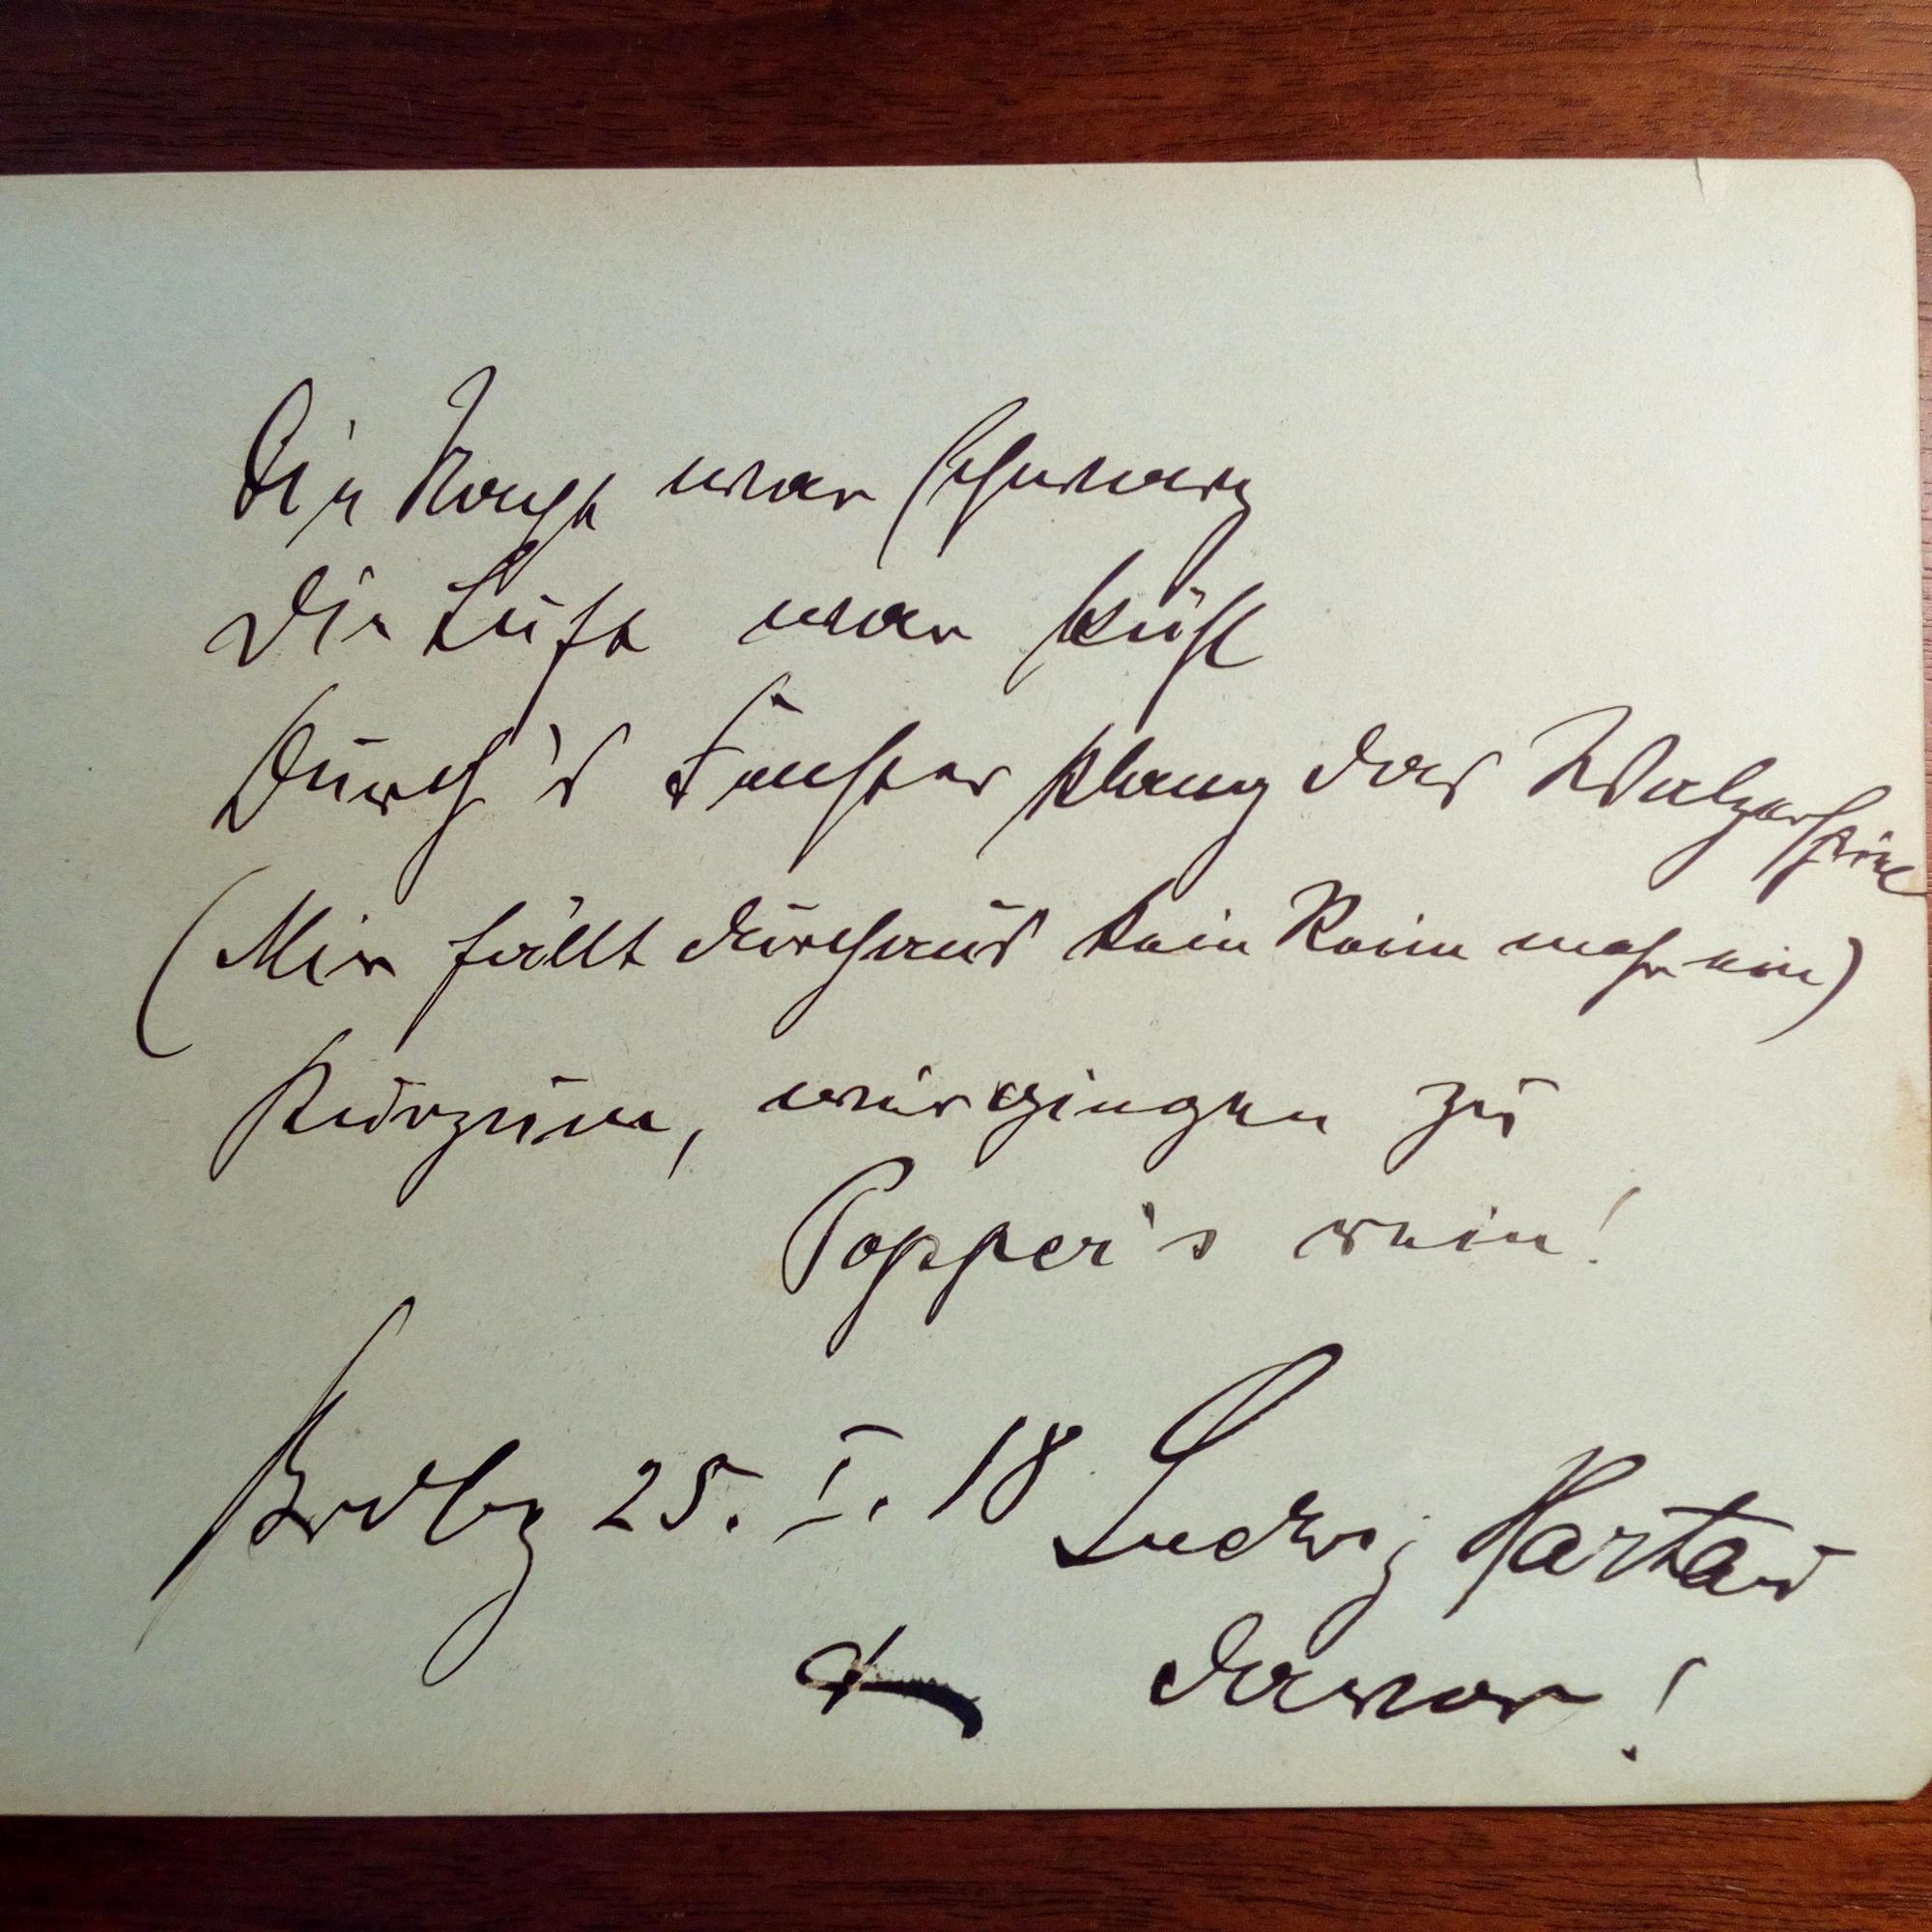 Die Nacht war schwarz
Die Luft war kühl
Durch's Fenster klang das Walzerspiel
(Mir fällt durchaus kein Reim mehr ein)
Kurzum, wir gingen zu
Popper's rein!
25. I. 18 Ludwig Hartau